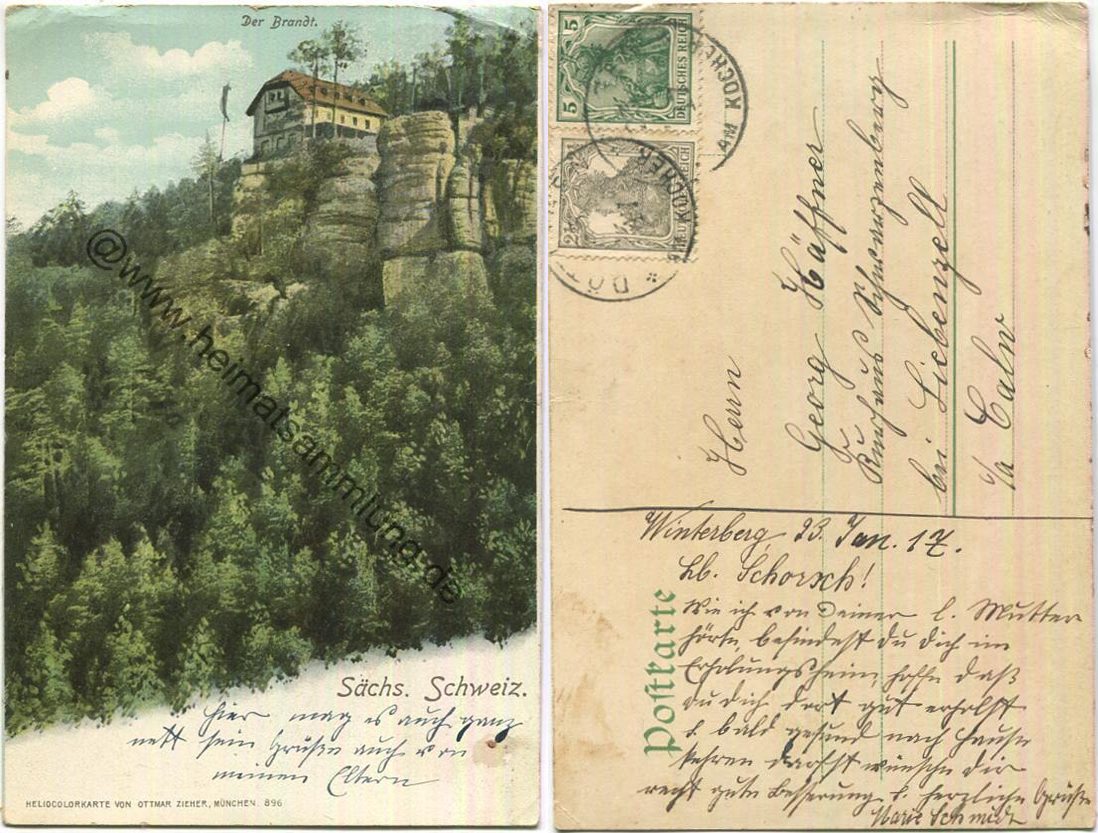 Der Brandt.
@www.heimatsammlung.de
Sächs. Schweiz.
hier mag es auch ganz
nett sein Grüße auch von
meinen Eltern
HELIOCOLORKARTE VON OTTMAR ZIEHER, MÜNCHEN. 896
5 5
DEUTSCHES REICH
2½
REICH
AM KOCHER
KOCHER
Herrn
Georg Häffner
Kurhaus Schwarzenberg
bei Liebenzell
o/a Calw
Postkarte
Winterberg, 23. Jan. 17.
Lb. Schorsch!
Wie ich von Deiner l. Mutter
hörte, befindest du dich im
Erholungsheim, hoffe daß
du dich dort gut erholst
u. bald gesund nach Hause
kehren darfst wünsche dir
recht gute Besserung u. herzliche Grüße
Marie Schmidt